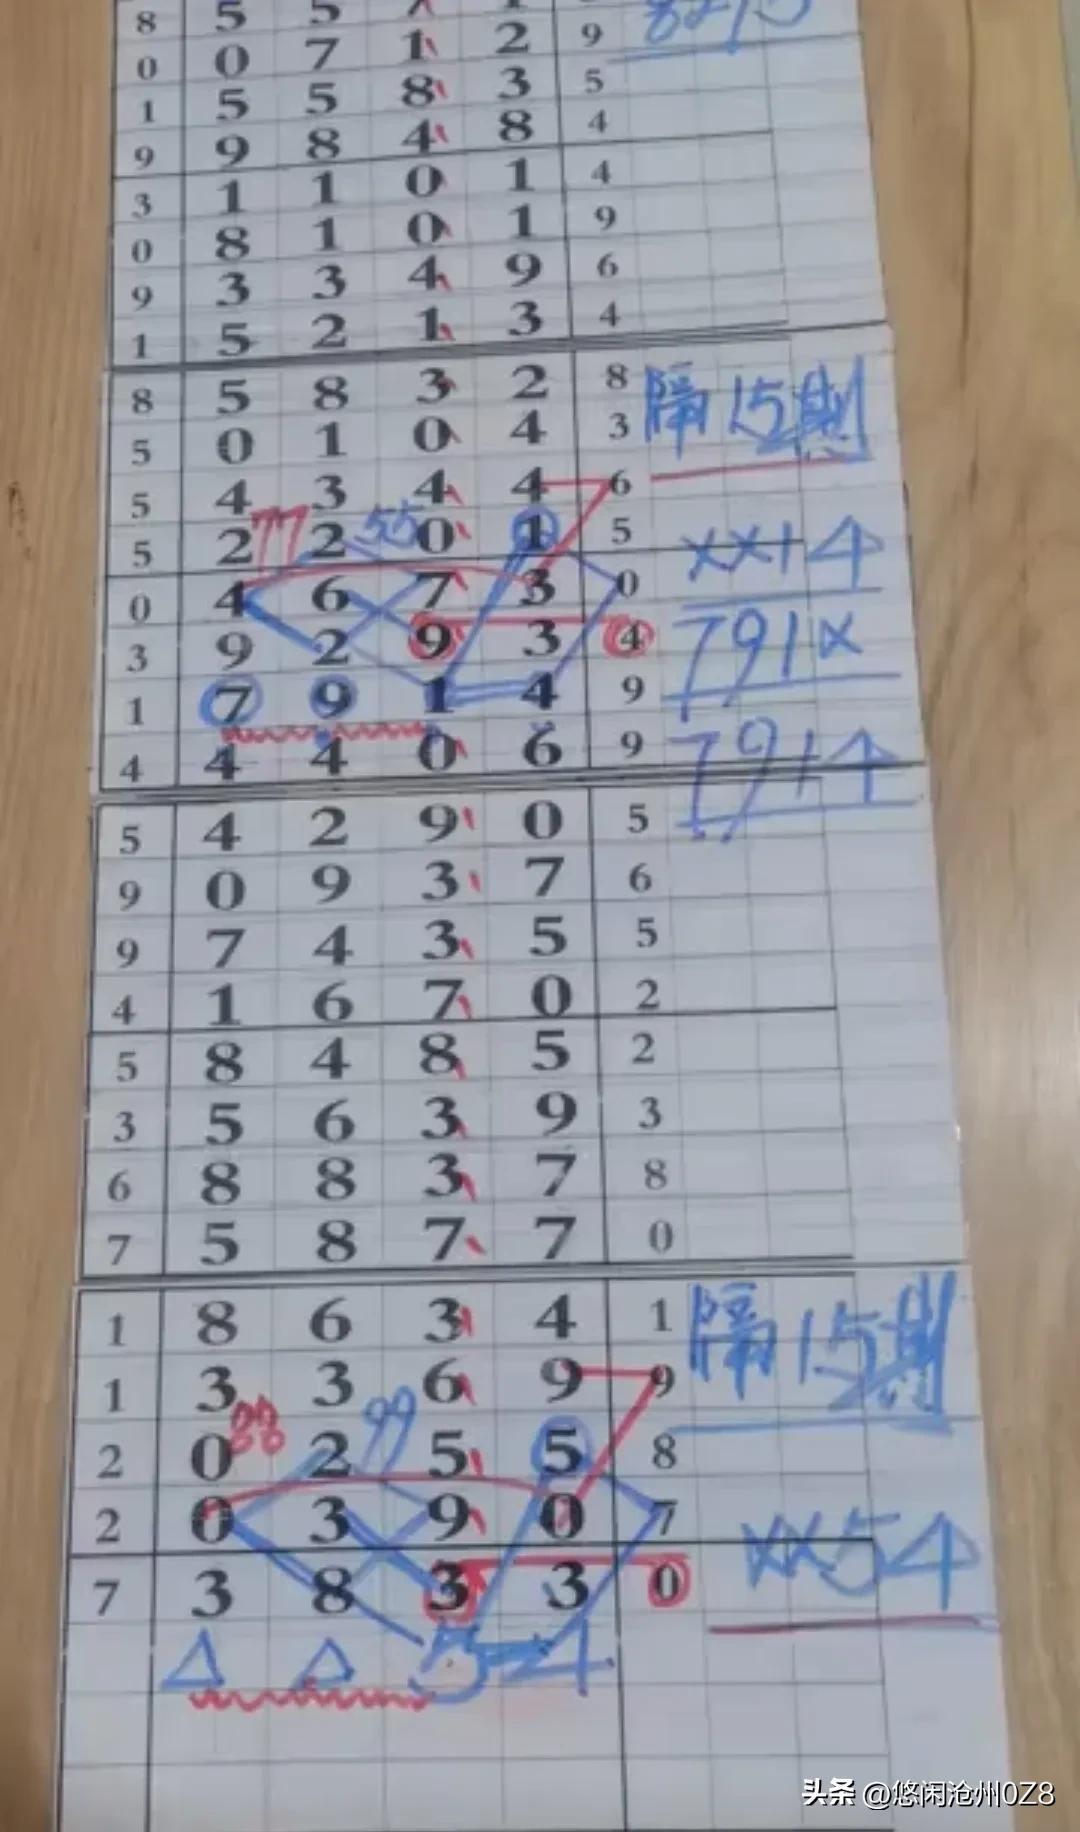 8 5 5
8215
0 0 7 1 2 9
1 5 5 8 3 5
9 9 8 4 8 4
3 1 1 0 1 4
0 8 1 0 1 9
9 3 3 4 9 6
1 5 2 1 3 4
8 5 8 3 2 8
隔15期
5 0 1 0 4 3
5 4 3 4 4 6
77 55
5 2 2 0 1 5
xx14
0 4 6 7 3 0
3 9 2 9 3 4
791x
1 7 9 1 4 9
4 4 4 0 6 9
7914
5 4 2 9 0 5
9 0 9 3 7 6
9 7 4 3 5 5
4 1 6 7 0 2
5 8 4 8 5 2
3 5 6 3 9 3
6 8 8 3 7 8
7 5 8 7 7 0
1 8 6 3 4 1
隔15期
1 3 3 6 9 9
88 99
2 0 2 5 5 8
2 0 3 9 0 7
xx54
7 3 8 3 3 0
54
头条 @悠闲沧州0Z8